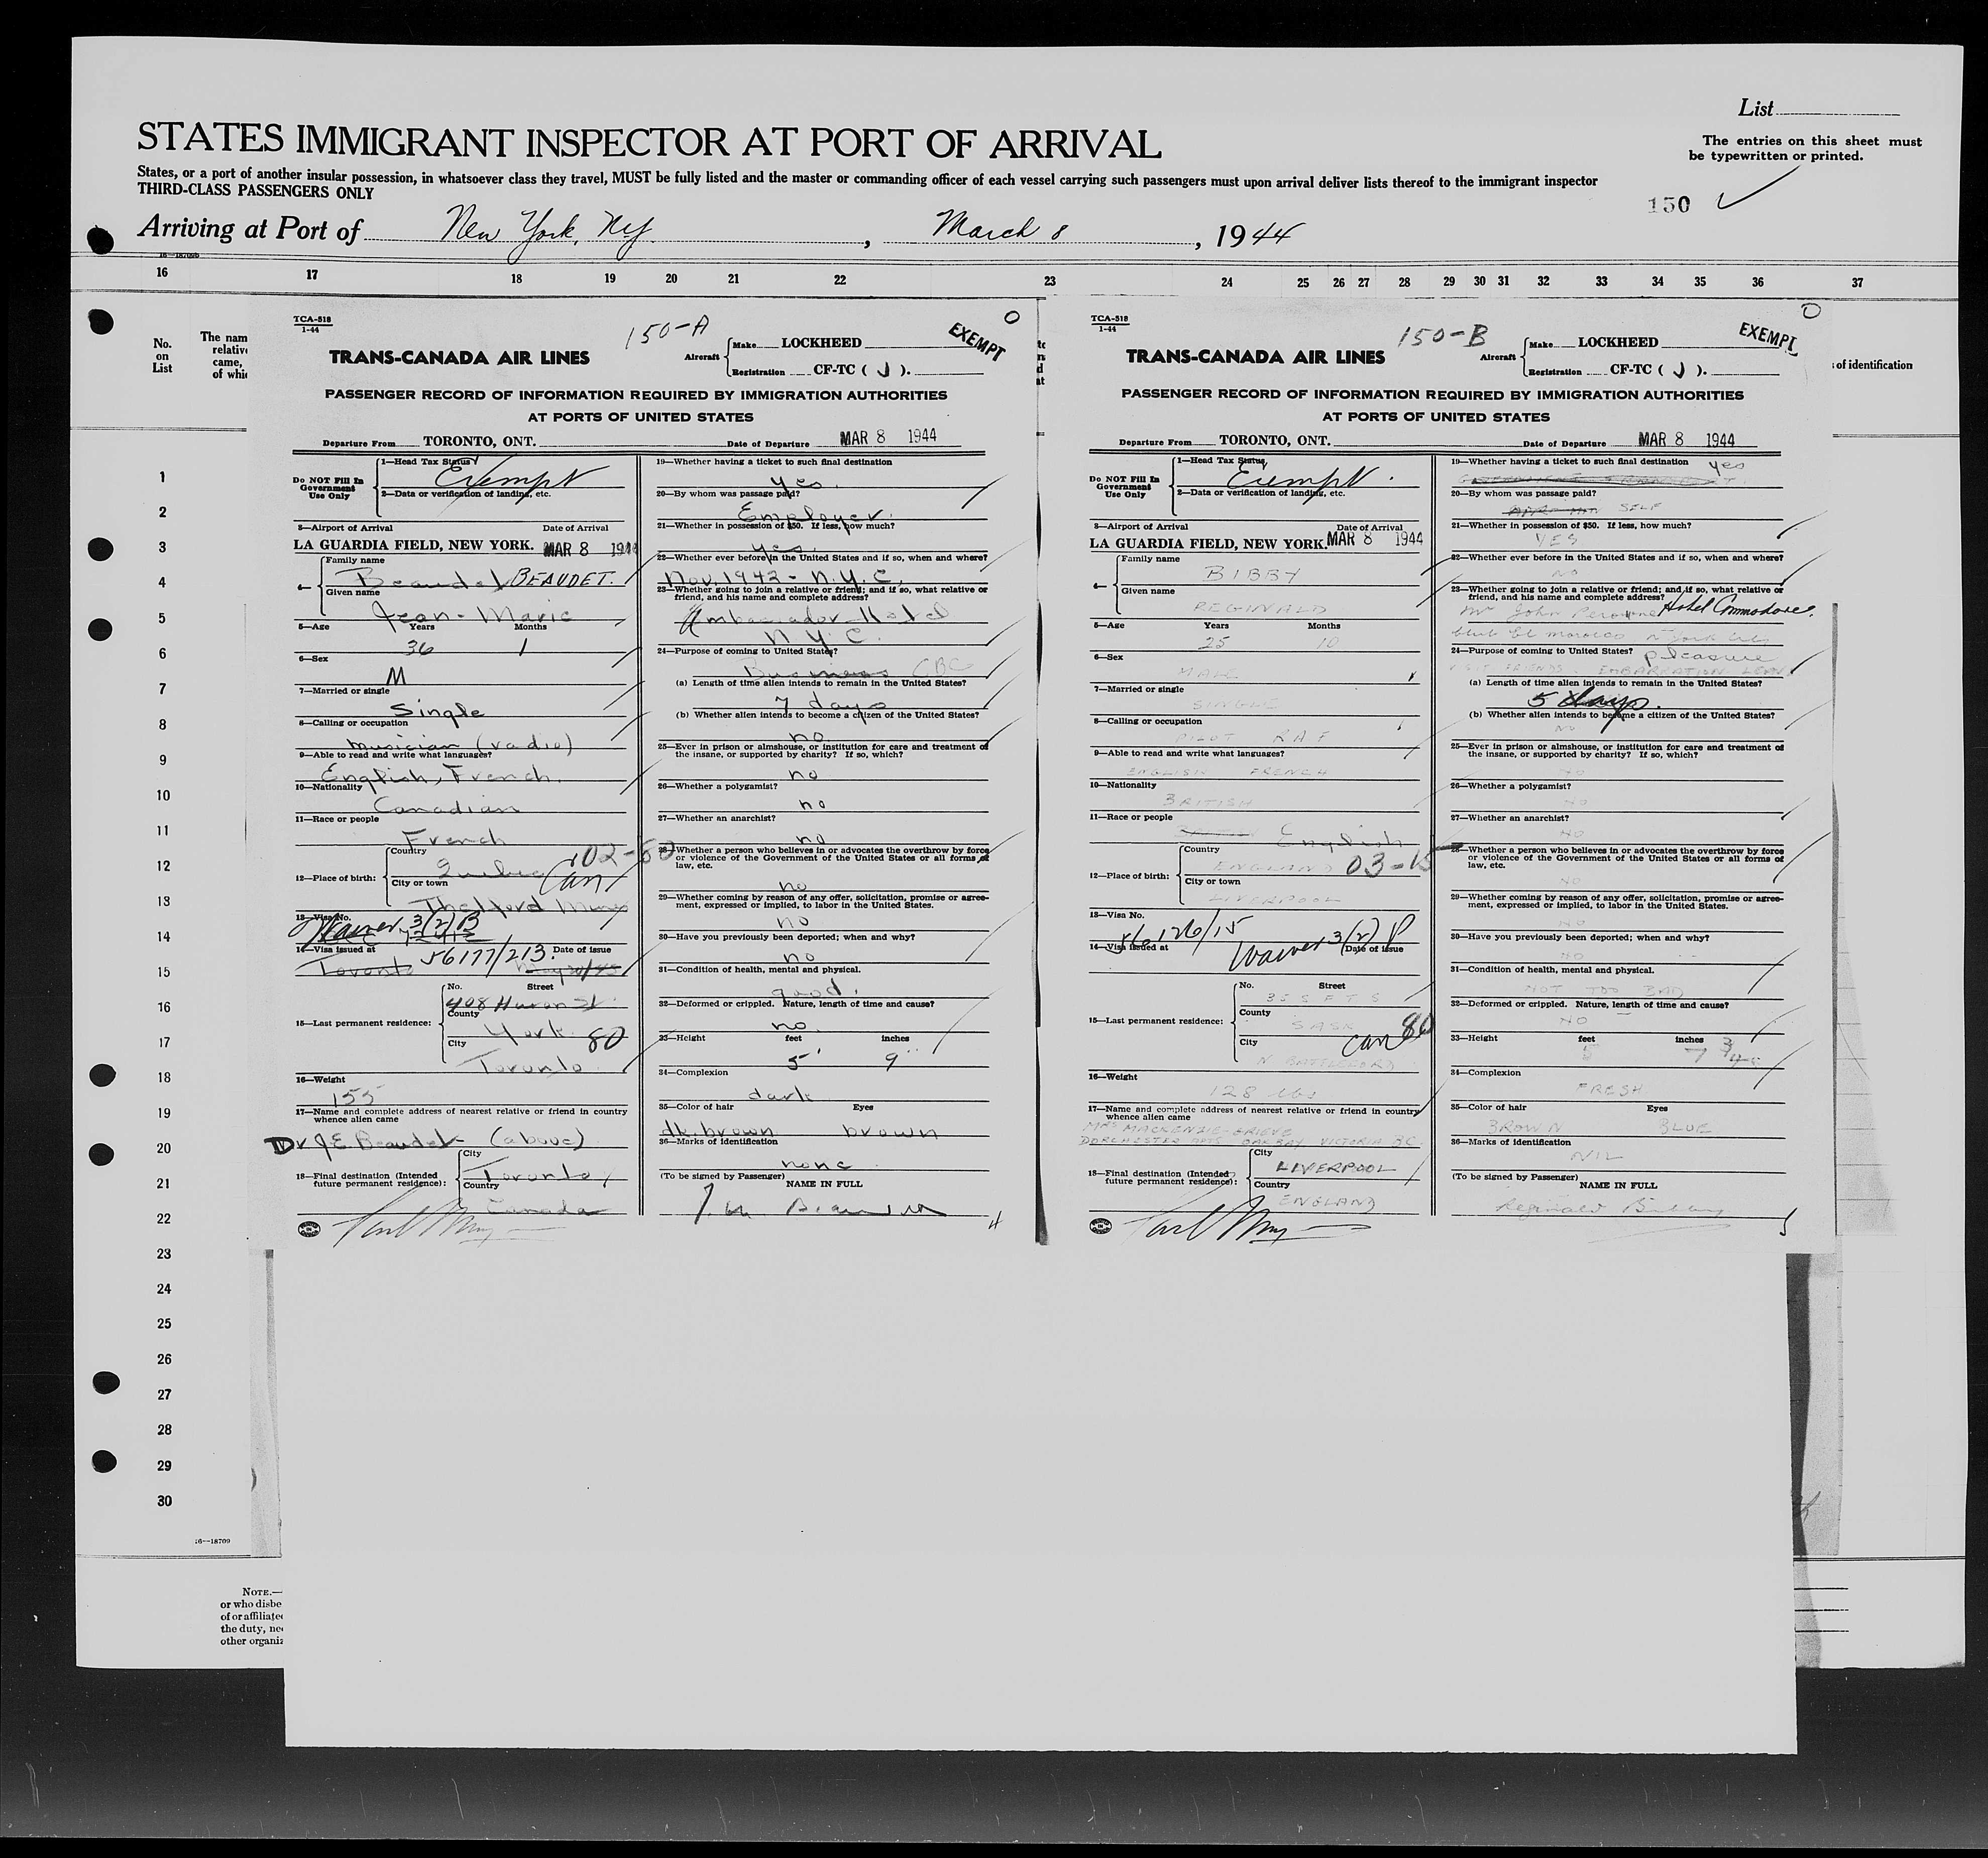 List
STATES IMMIGRANT INSPECTOR AT PORT OF ARRIVAL
The entries on this sheet must
be typewritten or printed.
States, or a port of another insular possession, in whatsoever class they travel, MUST be fully listed and the master or commanding officer of each vessel carrying such passengers must upon arrival deliver lists thereof to the immigrant inspector
THIRD-CLASS PASSENGERS ONLY
150
Arriving at Port of New York, NY. , March 8 , 1944
16 17 18 19 20 21 22 23 24 25 26 27 28 29 30 31 32 33 34 35 36 37
No.
on
List
The nam
relative
came,
of whic
of identification
1
2
3
4
5
6
7
8
9
10
11
12
13
14
15
16
17
18
19
20
21
22
23
24
25
26
27
28
29
30
16—18709
NOTE.—
or who disbe
of or affiliate
the duty, nec
other organiz
TCA-518
1-44
150-A
EXEMPT
TRANS-CANADA AIR LINES
Aircraft
Make LOCKHEED
Registration CF-TC ( J ).
PASSENGER RECORD OF INFORMATION REQUIRED BY IMMIGRATION AUTHORITIES
AT PORTS OF UNITED STATES
Departure From TORONTO, ONT. Date of Departure MAR 8 1944
Do NOT Fill In
Government
Use Only
1—Head Tax Status
Exempt
2—Data or verification of landing, etc.
3—Airport of Arrival Date of Arrival
LA GUARDIA FIELD, NEW YORK. MAR 8 1944
4—
Family name
Beaudet BEAUDET.
Given name
Jean-Marie
5—Age Years Months
36 1
6—Sex
M
7—Married or single
Single
8—Calling or occupation
musician (radio)
9—Able to read and write what languages?
English, French.
10—Nationality
Canadian
11—Race or people
French
12—Place of birth:
Country
Quebec Can 102-80
City or town
Thetford Mines
13—Visa No.
Waiver 3(2)B
14—Visa issued at Date of issue
Toronto 56177/213.
15—Last permanent residence:
No. Street
408 Huron St.
County
York 80
City
Toronto
16—Weight
155
17—Name and complete address of nearest relative or friend in country
whence alien came
Dr J.E. Beaudet (above)
18—Final destination (Intended
future permanent residence):
City
Toronto
Country
Canada
19—Whether having a ticket to such final destination
yes.
20—By whom was passage paid?
Employer.
21—Whether in possession of $50. If less, how much?
yes.
22—Whether ever before in the United States and if so, when and where?
Nov. 1943 - N.Y.C.
23—Whether going to join a relative or friend; and if so, what relative or
friend, and his name and complete address?
Ambassador Hotel
N.Y.C.
24—Purpose of coming to United States?
Business CBC
(a) Length of time alien intends to remain in the United States?
7 days
(b) Whether alien intends to become a citizen of the United States?
no
25—Ever in prison or almshouse, or institution for care and treatment of
the insane, or supported by charity? If so, which?
no
26—Whether a polygamist?
no
27—Whether an anarchist?
no
28—Whether a person who believes in or advocates the overthrow by force
or violence of the Government of the United States or all forms of
law, etc.
no
29—Whether coming by reason of any offer, solicitation, promise or agree-
ment, expressed or implied, to labor in the United States.
no
30—Have you previously been deported; when and why?
no
31—Condition of health, mental and physical.
good.
32—Deformed or crippled. Nature, length of time and cause?
no.
33—Height feet inches
5' 9"
34—Complexion
dark
35—Color of hair Eyes
dk. brown brown
36—Marks of identification
none
(To be signed by Passenger)
NAME IN FULL
J. M. Beaudet
TCA-518
1-44
150-B
EXEMPT
TRANS-CANADA AIR LINES
Aircraft
Make LOCKHEED
Registration CF-TC ( J ).
PASSENGER RECORD OF INFORMATION REQUIRED BY IMMIGRATION AUTHORITIES
AT PORTS OF UNITED STATES
Departure From TORONTO, ONT. Date of Departure MAR 8 1944
Do NOT Fill In
Government
Use Only
1—Head Tax Status
Exempt.
2—Data or verification of landing, etc.
3—Airport of Arrival Date of Arrival
LA GUARDIA FIELD, NEW YORK. MAR 8 1944
4—
Family name
BIBBY
Given name
REGINALD
5—Age Years Months
25 10
6—Sex
MALE
7—Married or single
SINGLE
8—Calling or occupation
PILOT RAF
9—Able to read and write what languages?
ENGLISH FRENCH
10—Nationality
BRITISH
11—Race or people
English
12—Place of birth:
Country
ENGLAND 03-15
City or town
LIVERPOOL
13—Visa No.
56126/15
14—Visa issued at Date of issue
Waiver 3(2) P
15—Last permanent residence:
No. Street
35 S F T S
County
SASK 80
City
N BATTLEFORD can
16—Weight
128 lbs
17—Name and complete address of nearest relative or friend in country
whence alien came
MRS MACKENZIE-GRIEVE
DORCHESTER APTS OAK BAY VICTORIA BC.
18—Final destination (Intended
future permanent residence):
City
LIVERPOOL
Country
ENGLAND
19—Whether having a ticket to such final destination
yes
20—By whom was passage paid?
SELF
21—Whether in possession of $50. If less, how much?
YES
22—Whether ever before in the United States and if so, when and where?
NO
23—Whether going to join a relative or friend; and if so, what relative or
friend, and his name and complete address?
Mr John Perona Hotel Commodore.
club El morocco N York City
24—Purpose of coming to United States? pleasure
VISIT FRIENDS EMBARCATION LEAVE
(a) Length of time alien intends to remain in the United States?
5 days.
(b) Whether alien intends to become a citizen of the United States?
NO
25—Ever in prison or almshouse, or institution for care and treatment of
the insane, or supported by charity? If so, which?
NO
26—Whether a polygamist?
NO
27—Whether an anarchist?
NO
28—Whether a person who believes in or advocates the overthrow by force
or violence of the Government of the United States or all forms of
law, etc.
NO
29—Whether coming by reason of any offer, solicitation, promise or agree-
ment, expressed or implied, to labor in the United States.
NO
30—Have you previously been deported; when and why?
NO
31—Condition of health, mental and physical.
NOT TOO BAD
32—Deformed or crippled. Nature, length of time and cause?
NO
33—Height feet inches
5 7 3/4
34—Complexion
FRESH
35—Color of hair Eyes
BROWN BLUE
36—Marks of identification
NIL
(To be signed by Passenger)
NAME IN FULL
Reginald Bibby